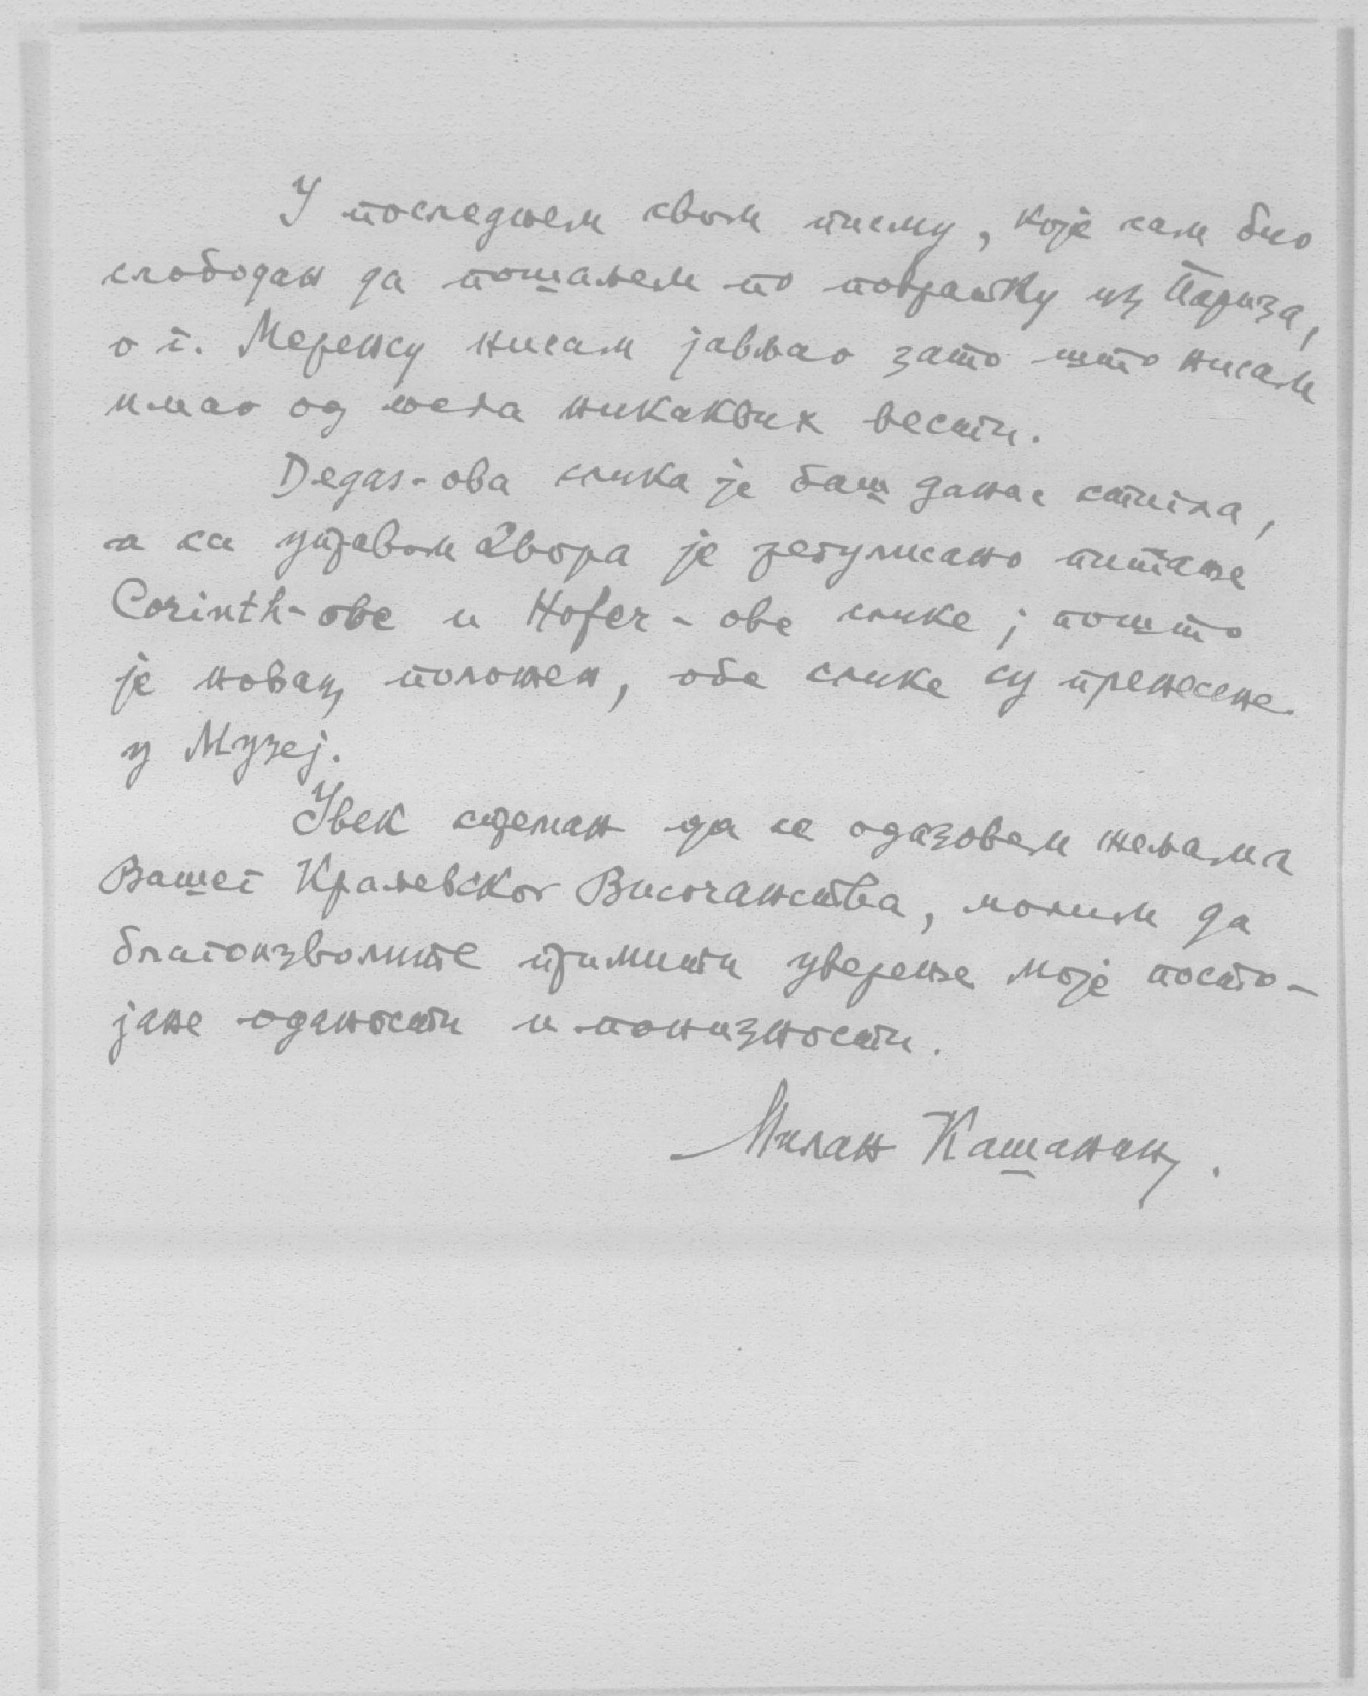 У последњем свом писму, које сам био
слободан да пошаљем по повратку из Париза,
о г. Меренсу нисам јављао зато што нисам
имао од њега никаквих вести.
Degas-ова слика је баш данас стигла,
а са управом Двора је регулисано питање
Corinth-ове и Hofer-ове слике; пошто
је новац положен, обе слике су пренесене
у Музеј.
Увек спреман да се одазовем жељама
Вашег Краљевског Височанства, молим да
благоизволите примити уверење моје посто-
јане оданости и понизности.
Милан Кашанин.